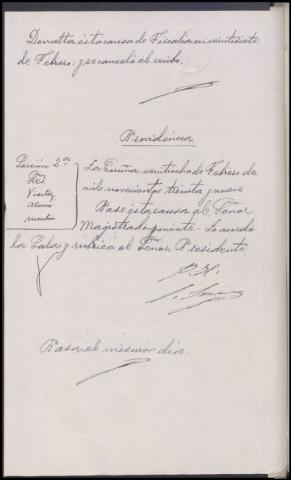 Devuelta esta causa de Fiscalia en veintisiete
de Febrero; y se canceló el recibo.
Providencia
Sección 2ª
La Coruña veintiocho de Febrero de
mil novecientos treinta y nueve
Pase esta causa al Señor
Magistrado ponente. Lo acordó
la Sala y rubrica el Señor Presidente
Pasa el mismo dia.